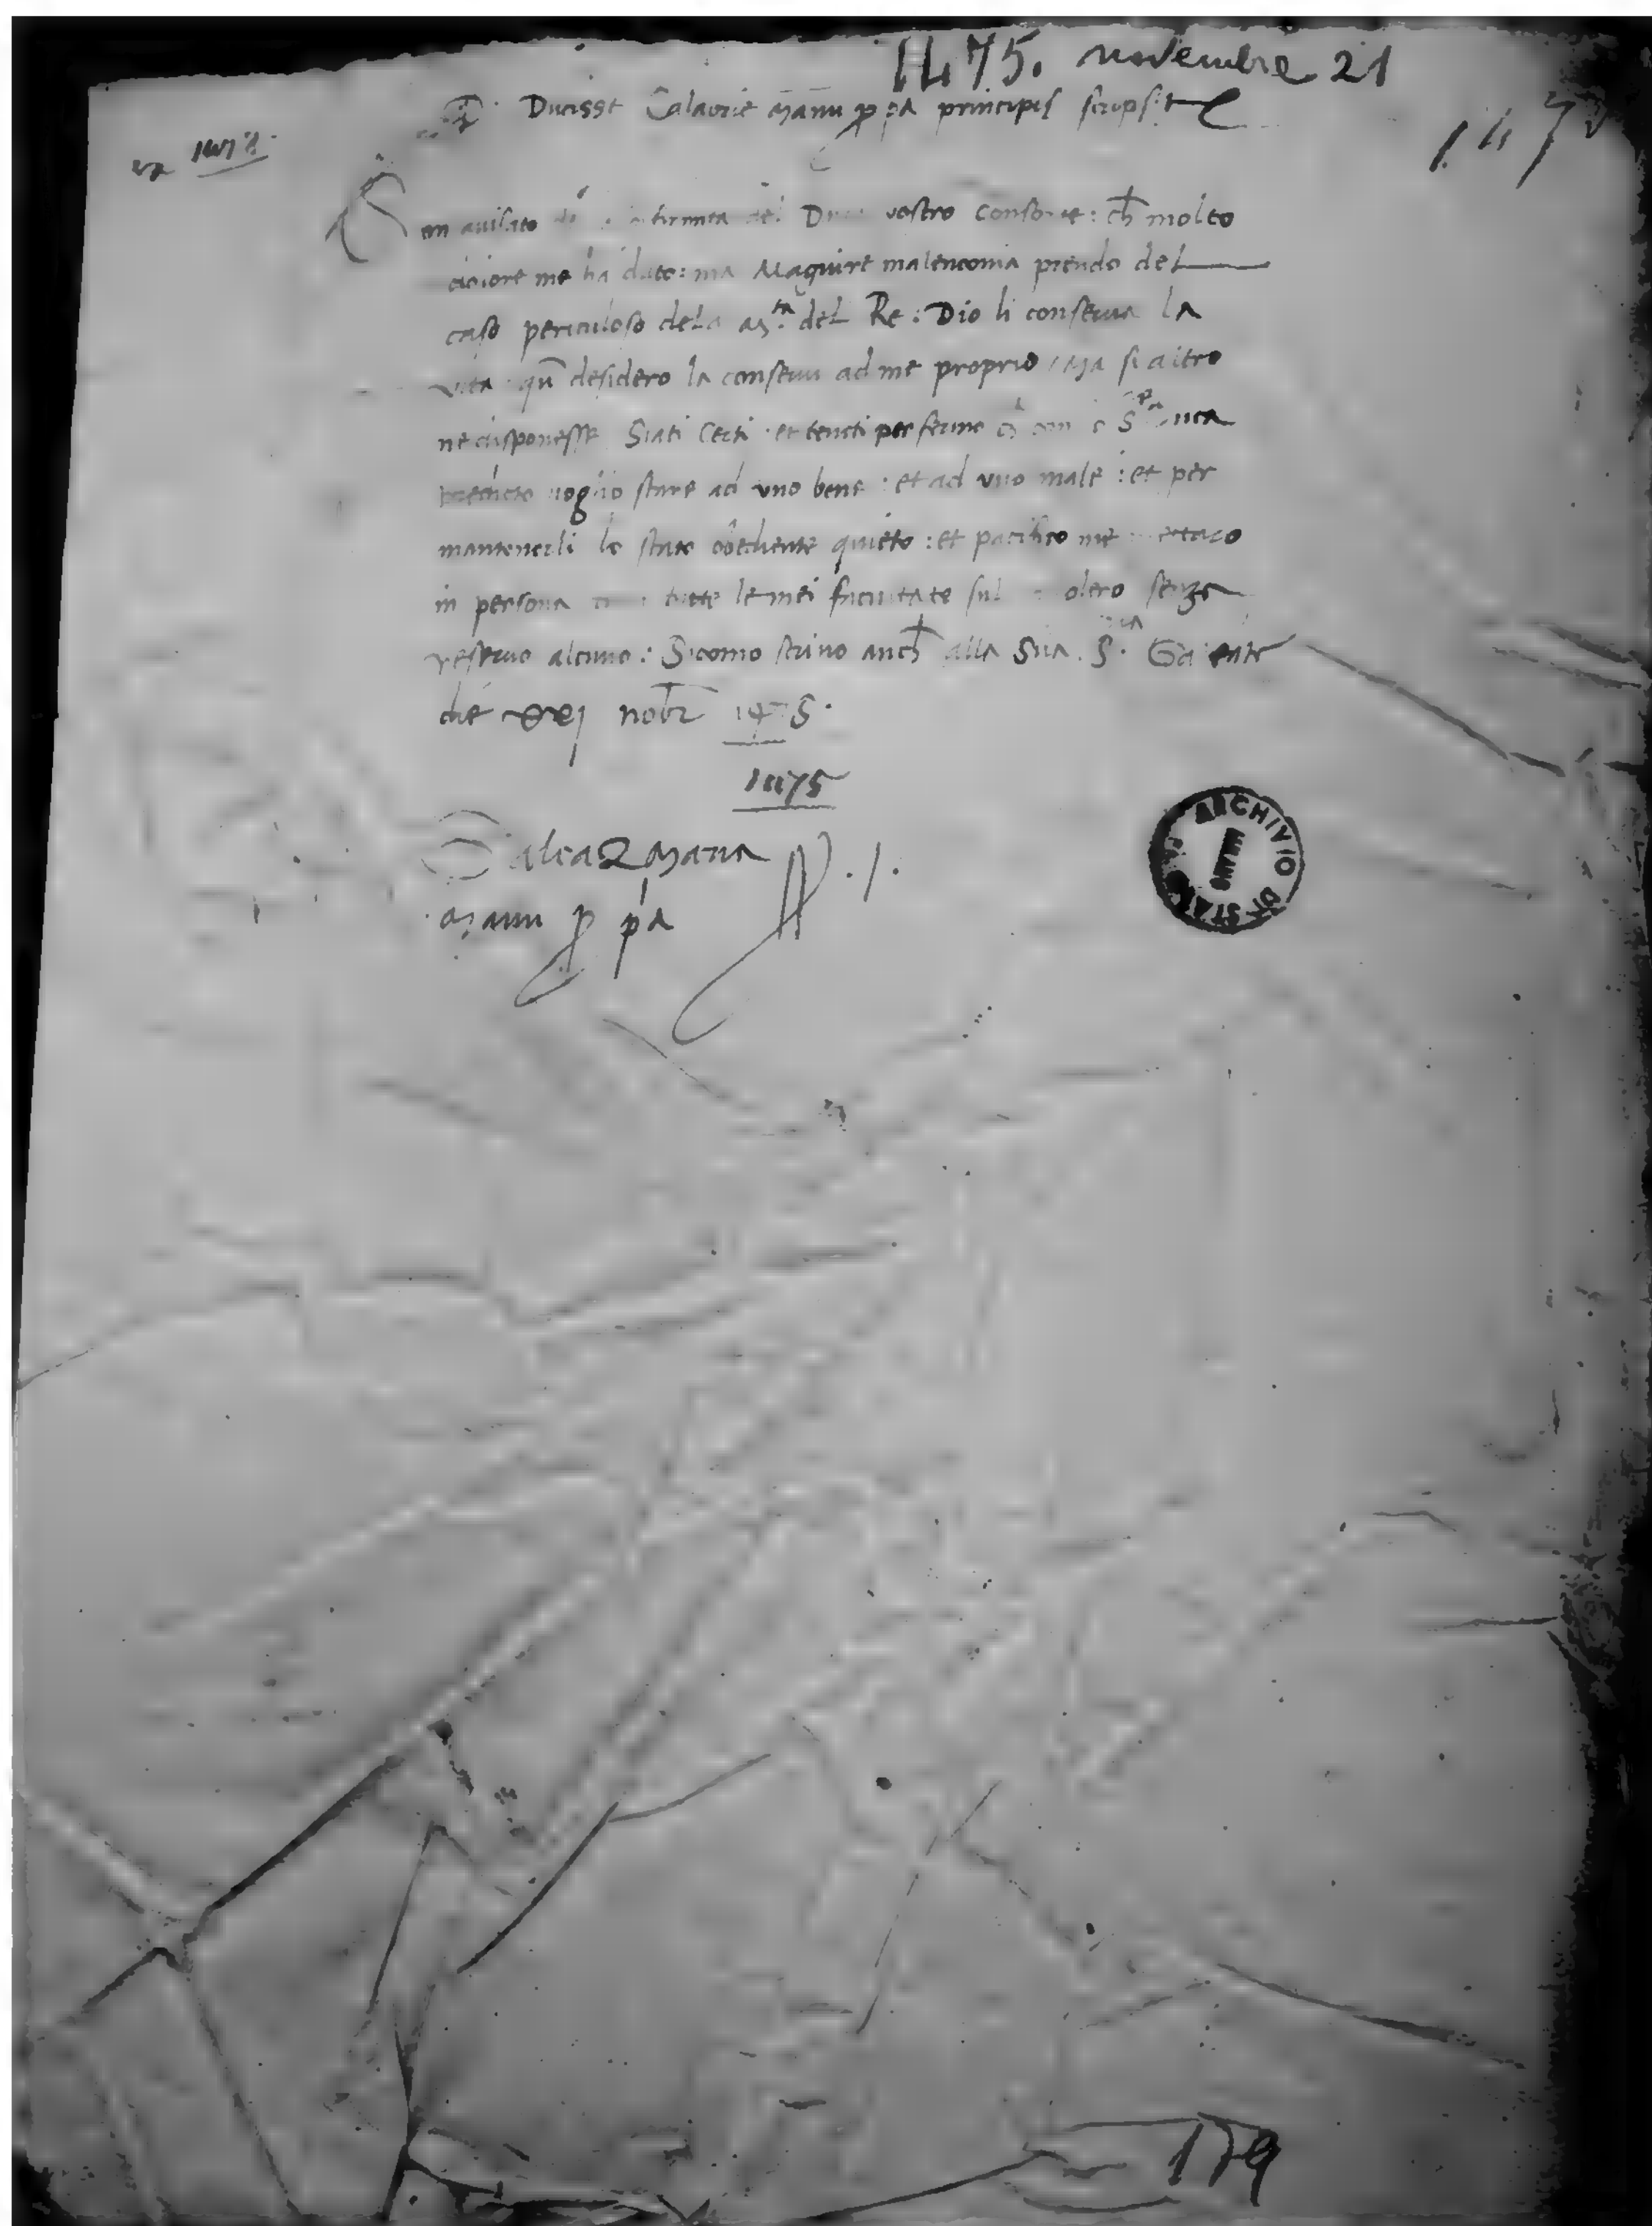 1475. novembre 21
Ducisse Calabrie Manu ppa principis scripsit
147
Son avisato firmita del Duca vostro Consorte: ch molto
dolore me ha dato: ma Magiure malenconia prendo del
caso periculoso dela M.ta del Re: Dio li conserva la
vita qn desidero la conservi ad me proprio Ma si altro
ne disponesse Siati Certi et teneti per fermo con S Duca
predicto voglio stare ad uno bene: et ad uno male: et per
mantenerli lo stato obediente quieto: et pacifico me mettaro
in persona cum tutte le mei facultate sul senza
reservo alcuno: Sicomo scrivo anch alla Sua S. Galeate
die xxj nobr 1475.
1475
Galeaz Maria
Manu p pa
ARCHIVIO DI STATO MILANO
179